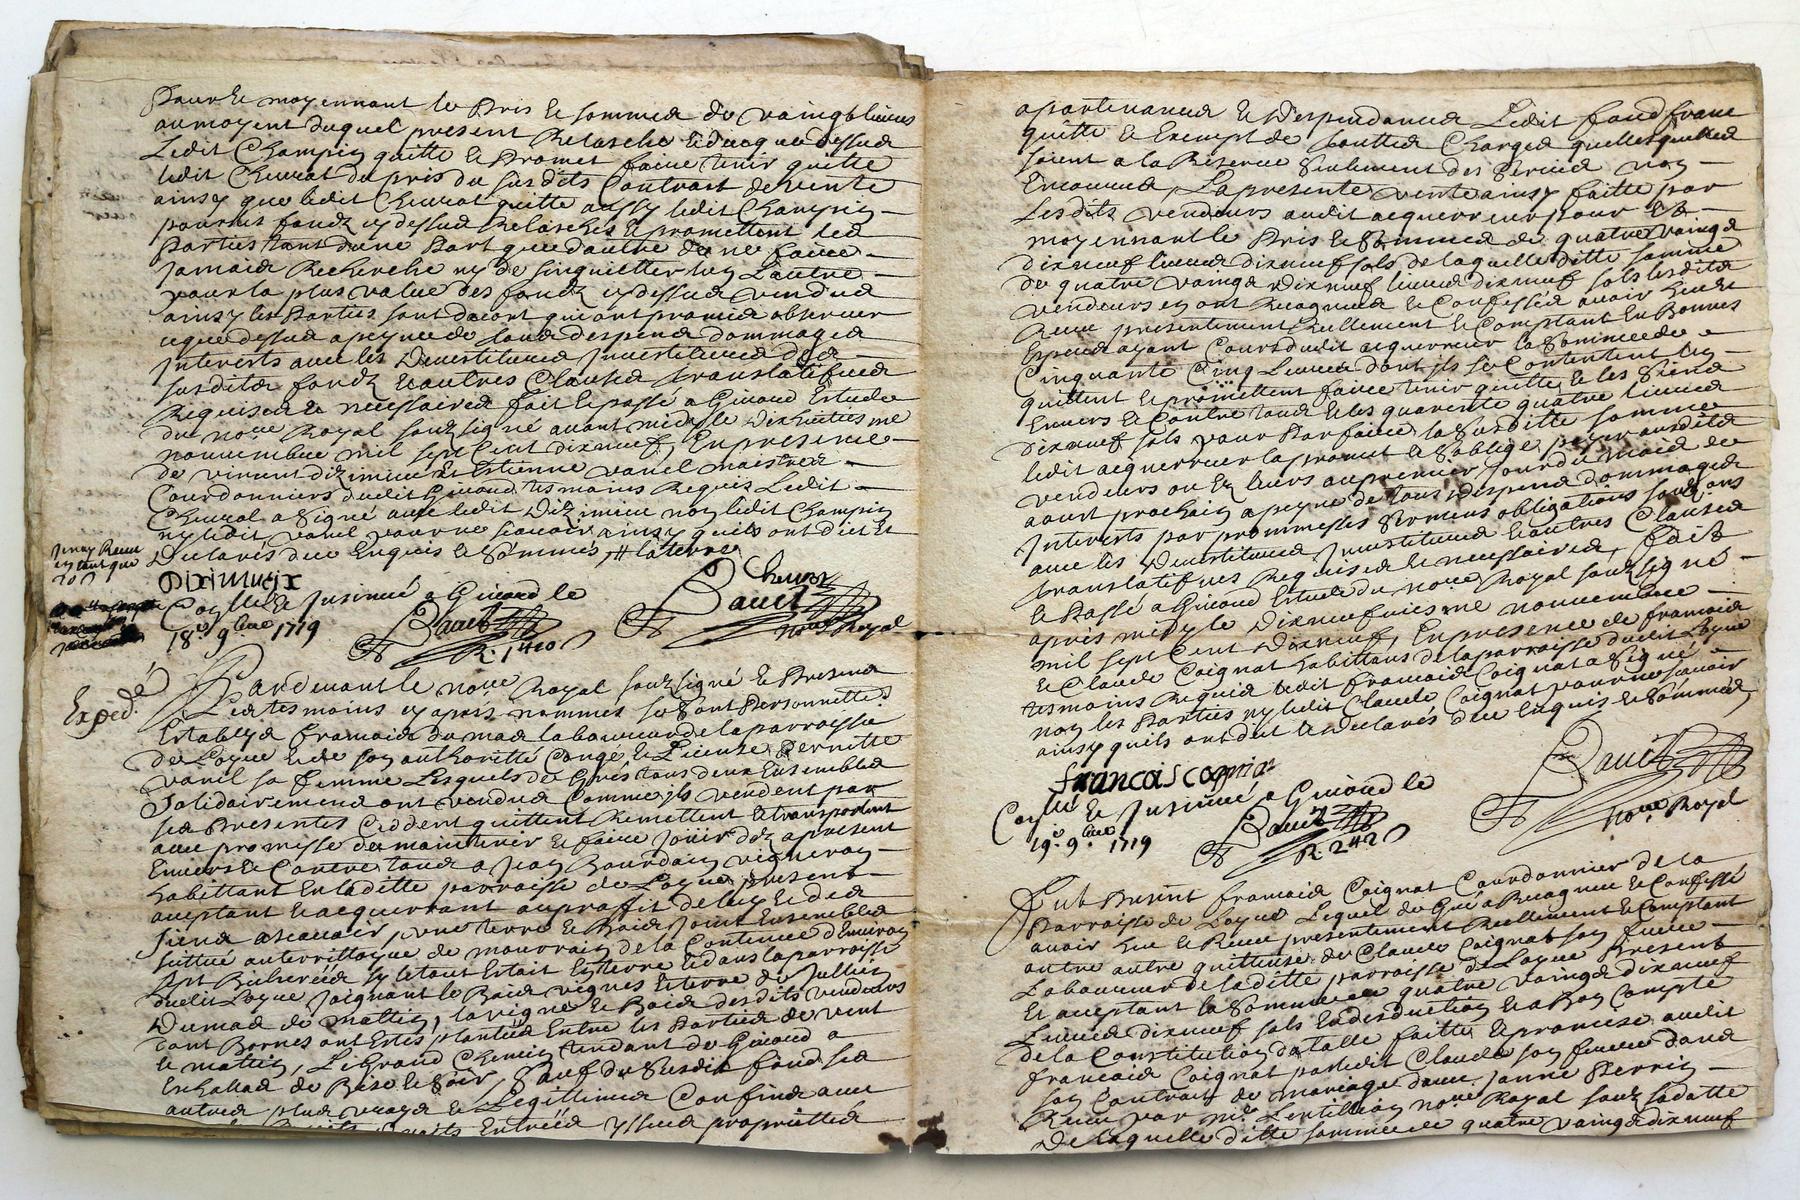 pour et moyennant le Pris et somme de vaingt livres
au moyent duquel present Relasche et ce que dessus
Ledit Champin quitte et Promet faire tenir quitte
ledit Chevrat du pris du susdits Contract de vente
ainsy que ledit Chevrat quitte aussy ledit Champin
pour les fondz cy dessus Relaschés et promettent les
Parties tant dune Part que dautre de ne faire
jamais Recherche ny de sinquietter luy Lautre
pour la plus value des fondz cy dessus vendus
ainsy les Parties sont dacort qui ont promis observer
ce que dessus a peyne de tous despens dommages
Interests avec les Devestitures Investitures des
susdits fondz et autres Clauses translatifves
Requises et necessaires fait et passé a Girond Estude
du no.re Royal soubzsigné avant midy le dixhuities me
novembre mil sept cent dixneuf, En presence
de vincent diximieux et Estienne vanel maistres
Courdonniers dudit Girond tesmoins Requis Ledit
Chevrat a Signé avec ledit Diximieux non ledit Champin
ny ledit vanel pour ne scavoir ainsy quils ont dict et
Declarés de ce Enquis et Sommés
Diximieux
Chevrat
Con.llé et Insinué a Girond le
18.e 9.bre 1719
no.re Royal
Exped.é
Pardevant le no.re Royal soubzsigné et Presens
Les tesmoins cy aprés nommés se sont Personnelle.t
Establys francois Dumas laboureur de la parroisse
de Loyue et de son authoritté Congé et Licence Pernette
vanel sa femme Lesquels de Grés tous deux Ensembles
Solidairement ont vendus Comme jls vendent par
les Presentes Ceddent quittent Remettent et transportent
avec promisse de maintenir et faire jouir dez a present
Envers et Contre tous a jean Bourdin vigneron
habittant En laditte parroisse de Loyue present
aceptant et acquerrant au proffit de luy et des
siens a scavoir, une terre et Bois joint Ensembles
scittué au territtoyre de mouvrain de la Contenue denviron
sept Bicherées sy le tout Estait En terre et dans la parroisse
dudit Loyue joignant le Bois vignes et terre de Jullien
Dumas de mattin, la vigne et Bois desdits vendeurs
dont Bornes ont Estés plantées Entre les Parties de vent
le mattin, Le Grand Chemin tendant de Girond a
de Bise et Soir, Sauf du Susdit fond ses
autres plus vrays et Legittimes Confins avec
Entrées yssues proprietted
apartenances et despendances Ledit fond franc
quitte et Exempt de touttes Charges quelles quelles
soient a la Reserve seulement des servis non
Encourus, La presente vente ainsy faitte par
Lesdits vendeurs audit acquerreur pour et
moyennant le Pris et Somme de quatre vaingt
dixneuf livres dixneuf sols de laquelle ditte somme
de quatre vaingt dixneuf livres dixneuf sols lesdits
vendeurs en ont Recognus et Confessés avoir heu et
Receu presentement Reellement et Comptant En Bonnes
Especes ayant Cours dudit acquerreur la somme de
Cinquante Cinq Livres dont jls se Contentent En
quittent et promettent faire tenir quitte et les Siens
Envers et Contre tous et les quarente quatre livres
dixneuf sols pour Parfaire la Susditte somme
ledit acquerreur la promet et soblige payer ausdits
vendeurs ou Es leurs au premier jour du mois de
aoust prochain a peyne de tous despens dommages
Interests par promesses Sermens obligations soubzions
avec les Devestitures Investitures et autres Clauses
translatifves Requises et necessaires, fait
et Passé a Girond Estude du no.re Royal soubzsigné
aprés midy le Dixneufviesme novembre
mil sept Cent Dixneuf, En presence de francois
et Claude Coignat habittans de la parroisse dudit Loyue
tesmoins Requis ledit francois Coignat a Signé
non les Parties ny ledit Claude Coignat pour ne scavoir
ainsy quils ont dit et Declarés de ce Enquis et Sommés
francois cognat
Con.llé et Insinué a Girond le
19.e 9.bre 1719
no.re Royal
fut Present francois Coignat Courdonnier de la
Parroisse de Loyue Lequel de Gré a Recognu et Confessé
avoir heu et Receu presentement Reellement et Comptant
outre autre quittence de Claude Coignat son frere
Laboureur de laditte parroisse de Loyue Present
Et aceptant la Somme de quatre vaingt dixneuf
Livres dixneuf sols En desduction et a Bon Compte
de la Constitution datalle faitte et promise audit
francois Coignat par ledit Claude son frere dans
son Contract de mariage avec janne Perrin
Receu par m.e Lentillion no.re Royal soubz sa datte
De laquelle ditte somme de quatre vaingt dixneuf